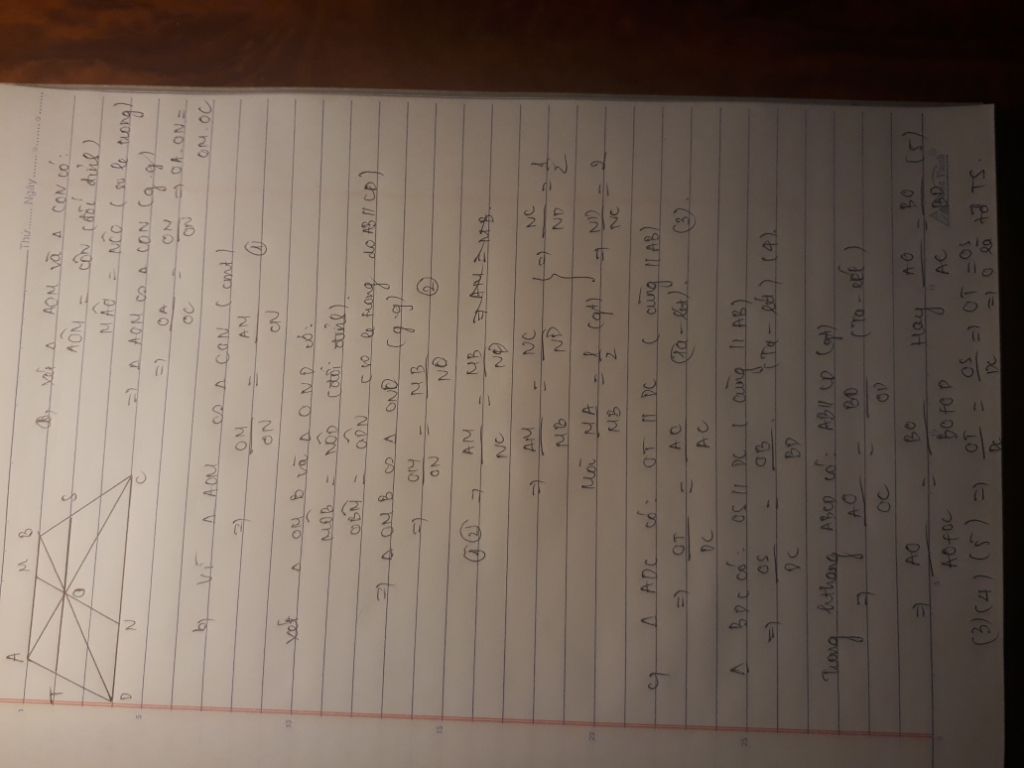 Thứ ........ Ngày ........
A M B
T O S
D N C
a, Xét Δ AOM và Δ CON có:
AÔM = CÔN (đối đỉnh)
MÂO = NĈO (so le trong)
=> Δ AOM ∽ Δ CON (g.g)
=> OA/OC = OM/ON => OA.ON = OM.OC
b) Vì Δ AOM ∽ Δ CON (cmt)
=> OM/ON = AM/CN ①
Xét Δ OMB và Δ OND có:
MÔB = NÔD (đối đỉnh)
OBM = ODN (so le trong do AB // CD)
=> Δ OMB ∽ Δ OND (g.g)
=> OM/ON = MB/ND ②
①② => AM/NC = MB/ND
=> AM/MB = NC/ND
Mà MA/MB = 1/2 (gt) } => NC/ND = 1/2 => ND/NC = 2
c) Δ ADC có: OT // DC (cùng // AB)
=> OT/DC = AO/AC (Ta-lét). (3)
Δ BDC có: OS // DC (cùng // AB)
=> OS/DC = OB/BD (Ta-lét) (4)
Trong hthang ABCD có: AB // CD (gt)
=> AO/OC = BO/OD (Ta-lét)
=> AO/AO+OC = BO/BO+OD Hay AO/AC = BO/BD (5)
(3)(4)(5) => OT/DC = OS/DC => OT = OS
=> O là TĐ TS.